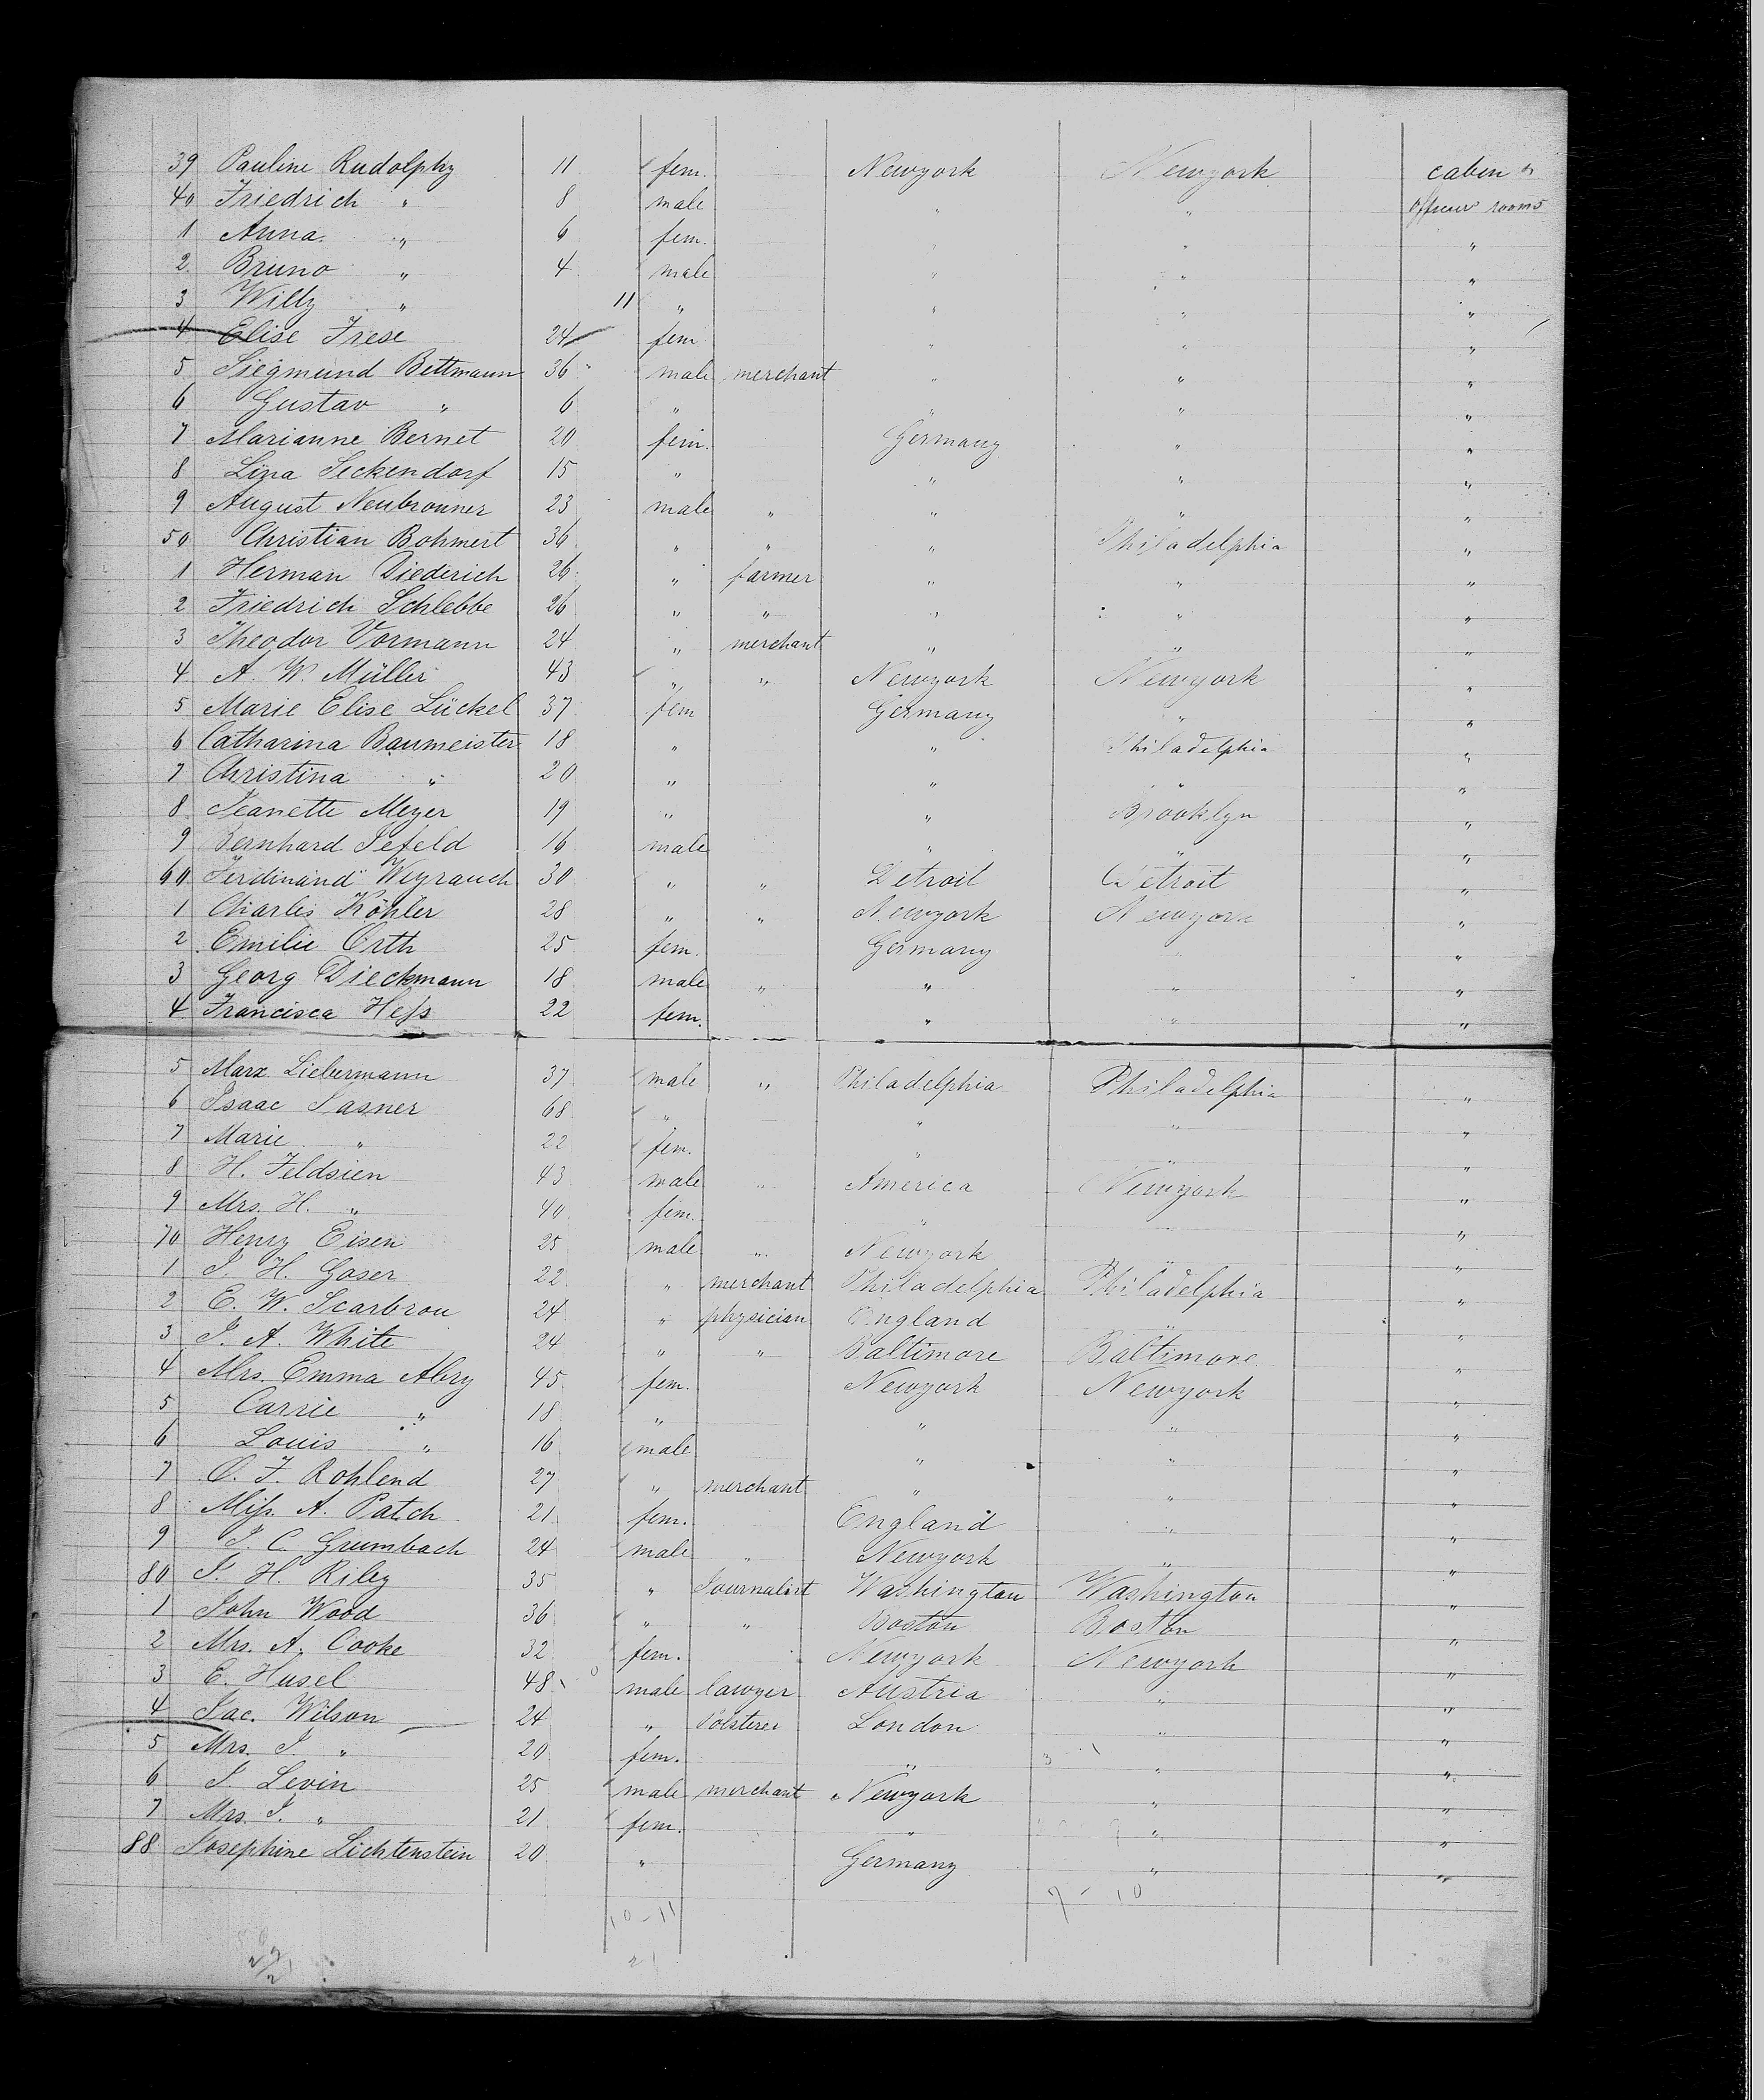 39 Pauline Rudolphy 11 fem. Newyork Newyork cabin &
40 Friedrich " 8 male " " Officers rooms
1 Anna " 6 fem. " " "
2 Bruno " 4 male " " "
3 Willy " 11 " " " "
4 Elise Frese 24 fem " " "
5 Siegmund Bettmann 36 male merchant " " "
6 Gustav " 6 " " " "
7 Marianne Bernet 20 fem. Germany " "
8 Lina Seckendorf 15 " " " "
9 August Neubronner 23 male " " " "
50 Christian Bohmert 36 " " " Philadelphia "
1 Herman Diederich 26 " farmer " " "
2 Friedrich Schlebbe 26 " " " " "
3 Theodor Vormann 24 " merchant " " "
4 A. W. Müller 43 " " Newyork Newyork "
5 Marie Elise Lückel 37 fem Germany " "
6 Catharina Baumeister 18 " " Philadelphia "
7 Christina " 20 " " " "
8 Jeanette Meyer 19 " " Brooklyn "
9 Bernhard Sefeld 16 male " " "
60 Ferdinand Weyrauch 30 " " Detroit Detroit "
1 Charles Köhler 28 " " Newyork Newyork "
2 Emilie Orth 25 fem. Germany " "
3 Georg Dieckmann 18 male " " " "
4 Francisca Heſs 22 fem. " " "
5 Marx Liebermann 37 male " Philadelphia Philadelphia "
6 Isaac Sasner 68 " " " "
7 Marie " 22 fem. " " "
8 H. Feldsien 43 male " America Newyork "
9 Mrs. H. " 40 fem. " " "
70 Henry Eisen 25 male " Newyork " "
1 J. H. Gaser 22 " merchant Philadelphia Philadelphia "
2 E. W. Scarbrou 24 " physician England " "
3 J. A. White 24 " " Baltimore Baltimore "
4 Mrs. Emma Abry 45 fem. Newyork Newyork "
5 Carrie " 18 " " " "
6 Louis " 16 male " " "
7 O. F. Rohlend 27 " merchant " " "
8 Miſs. A. Patch 21 fem. England " "
9 J. C. Grumbach 24 male " Newyork " "
80 J. H. Riley 35 " Journalist Washington Washington "
1 John Wood 36 " " Boston Boston "
2 Mrs. A. Cooke 32 fem. Newyork Newyork "
3 E. Husel 48 male lawyer Austria " "
4 Jac. Wilson 24 " Polsterer London " "
5 Mrs. J. " 20 fem. " " "
6 J. Levin 25 male merchant Newyork " "
7 Mrs. J. " 21 fem. " " "
88 Josephine Lichtenstein 20 " Germany " "
10-11 9-10
21